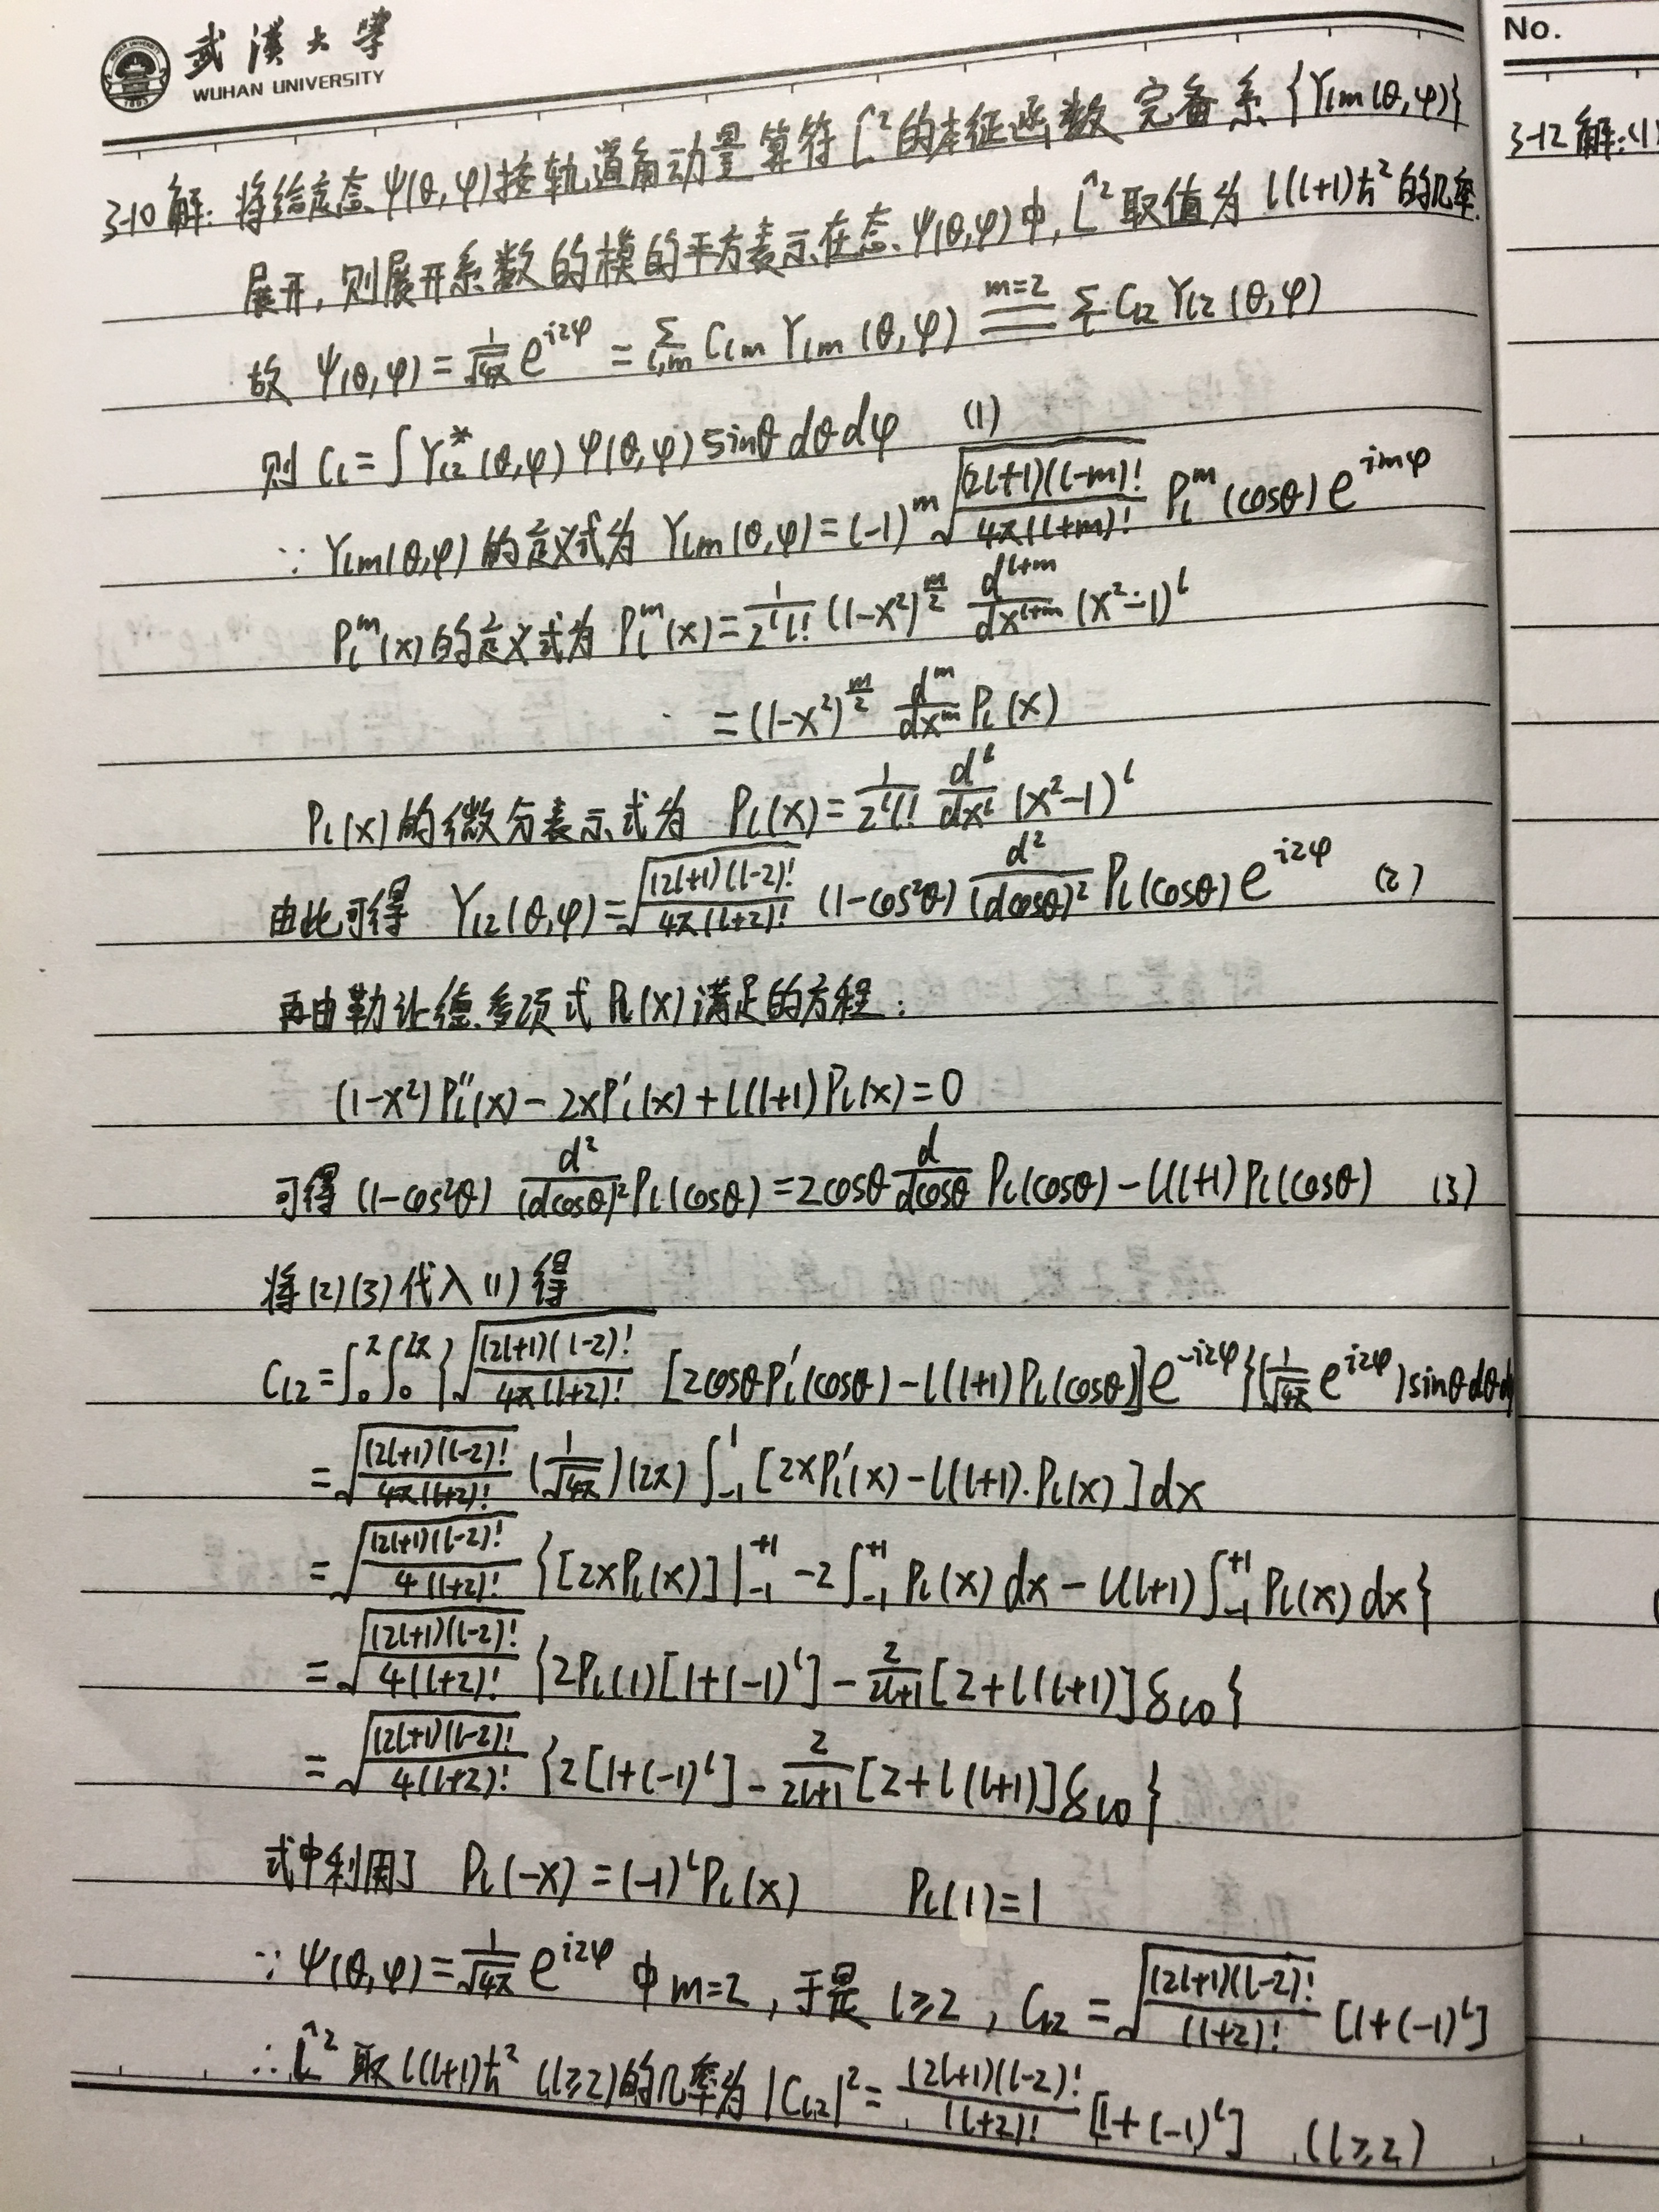 武漢大學
WUHAN UNIVERSITY
No.
3-10 解: 将给定态 ψ(θ,φ) 按轨道角动量算符 L̂² 的本征函数完备系 {Yₗₘ(θ,φ)}
展开, 则展开系数的模的平方表示在态 ψ(θ,φ) 中, L̂² 取值为 l(l+1)ħ² 的几率.
故 ψ(θ,φ) = 1/√4π e^{i2φ} = Σ_{l,m} C_{lm} Y_{lm}(θ,φ) ==(m=2)== Σ_l C_{l2} Y_{l2}(θ,φ)
则 C_l = ∫ Y*_{l2}(θ,φ) ψ(θ,φ) sinθ dθ dφ (1)
∵ Y_{lm}(θ,φ) 的定义式为 Y_{lm}(θ,φ) = (-1)^m √((2l+1)(l-m)!/4π(l+m)!) P_l^m(cosθ) e^{imφ}
P_l^m(x) 的定义式为 P_l^m(x) = 1/(2^l l!) (1-x²)^{m/2} d^{l+m}/dx^{l+m} (x²-1)^l
= (1-x²)^{m/2} d^m/dx^m P_l(x)
P_l(x) 的微分表示式为 P_l(x) = 1/(2^l l!) d^l/dx^l (x²-1)^l
由此可得 Y_{l2}(θ,φ) = √((2l+1)(l-2)!/4π(l+2)!) (1-cos²θ) d²/(dcosθ)² P_l(cosθ) e^{i2φ} (2)
再由勒让德多项式 P_l(x) 满足的方程:
(1-x²)P_l''(x) - 2xP_l'(x) + l(l+1)P_l(x) = 0
可得 (1-cos²θ) d²/(dcosθ)² P_l(cosθ) = 2cosθ d/dcosθ P_l(cosθ) - l(l+1)P_l(cosθ) (3)
将(2)(3)代入(1)得
C_{l2} = ∫_0^π ∫_0^{2π} {√((2l+1)(l-2)!/4π(l+2)!) [2cosθP_l'(cosθ) - l(l+1)P_l(cosθ)] e^{-i2φ}} (1/√4π e^{i2φ}) sinθ dθ d
= √((2l+1)(l-2)!/4π(l+2)!) (1/√4π)(2π) ∫_{-1}^{1} [2xP_l'(x) - l(l+1)·P_l(x)] dx
= √((2l+1)(l-2)!/4(l+2)!) {[2xP_l(x)]|_{-1}^{+1} - 2∫_{-1}^{+1} P_l(x) dx - l(l+1) ∫_{-1}^{+1} P_l(x) dx}
= √((2l+1)(l-2)!/4(l+2)!) {2P_l(1)[1+(-1)^l] - 2/(2l+1) [2+l(l+1)] δ_{l0}}
= √((2l+1)(l-2)!/4(l+2)!) {2[1+(-1)^l] - 2/(2l+1) [2+l(l+1)] δ_{l0}}
式中利用了 P_l(-x) = (-1)^l P_l(x) P_l(1) = 1
∵ ψ(θ,φ) = 1/√4π e^{i2φ} 中 m=2, 于是 l≥2, C_{l2} = √((2l+1)(l-2)!/(l+2)!) [1+(-1)^l]
∴ L̂² 取 l(l+1)ħ² (l≥2) 的几率为 |C_{l2}|² = (2l+1)(l-2)!/(l+2)! [1+(-1)^l] (l≥2)
3-12 解: (1)